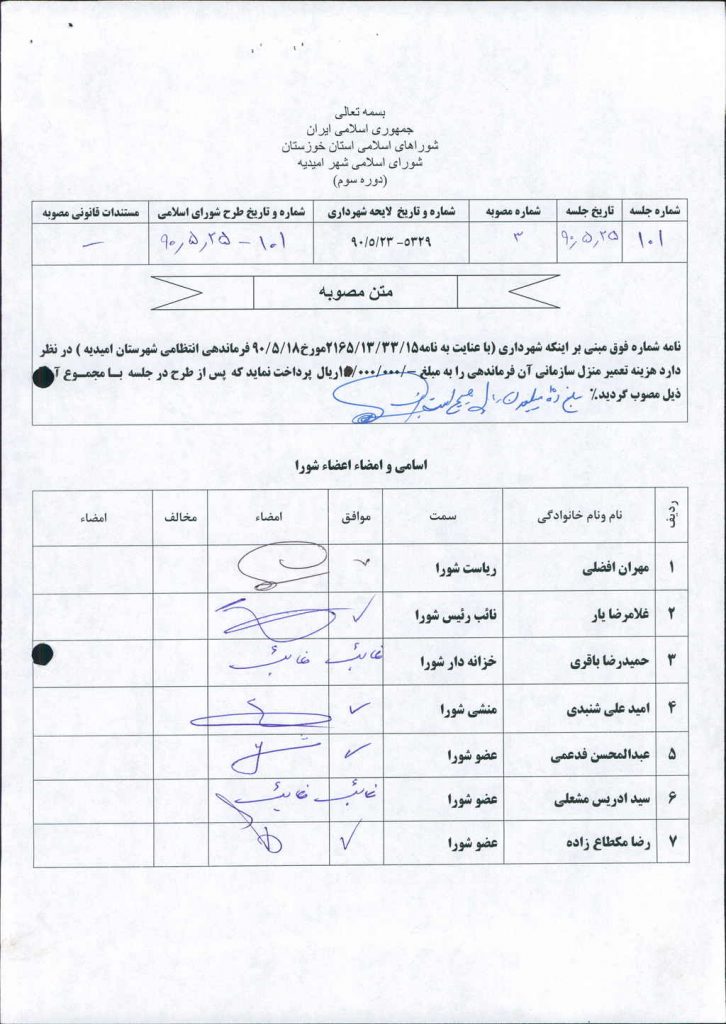 بسمه تعالی
جمهوری اسلامی ایران
شوراهای اسلامی استان خوزستان
شورای اسلامی شهر امیدیه
(دوره سوم)
شماره جلسه تاریخ جلسه شماره مصوبه شماره و تاریخ لایحه شهرداری شماره و تاریخ طرح شورای اسلامی مستندات قانونی مصوبه
۱۰۱ ۹۰٫۵٫۲۵ ۳ ۵۳۲۹- ۹۰/۵/۲۳ ۱۰۱ – ۹۰٫۵٫۲۵ –
متن مصوبه
نامه شماره فوق مبنی بر اینکه شهرداری (با عنایت به نامه۲۱۶۵/۱۳/۳۳/۱۵مورخ۹۰/۵/۱۸ فرماندهی انتظامی شهرستان امیدیه ) در نظر
دارد هزینه تعمیر منزل سازمانی آن فرماندهی را به مبلغ ریال پرداخت نماید که پس از طرح در جلسه با مجموع
ذیل مصوب گردید.٪ مبلغ ده میلیون ریال صحیح است
اسامی و امضاء اعضاء شورا
ردیف نام ونام خانوادگی سمت موافق امضاء مخالف امضاء
۱ مهران افضلی ریاست شورا ✓
۲ غلامرضا یار نائب رئیس شورا ✓
۳ حمیدرضا باقری خزانه دار شورا غائب غائب
۴ امید علی شنبدی منشی شورا ✓
۵ عبدالمحسن فدعمی عضو شورا ✓
۶ سید ادریس مشعلی عضو شورا غائب غائب
۷ رضا مکطاع زاده عضو شورا ✓